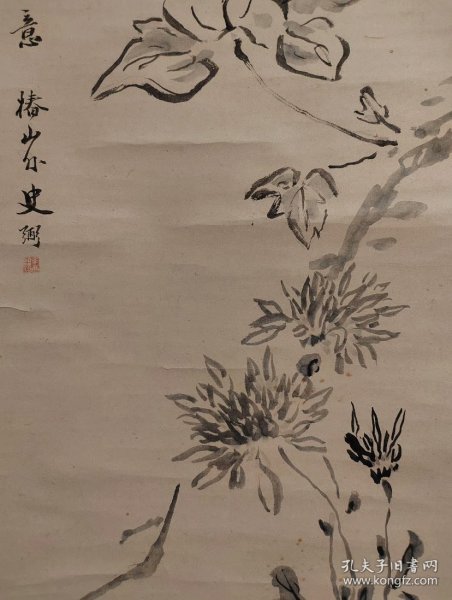 意 椿山外史弼
孔夫子旧书网
www.kongfz.com